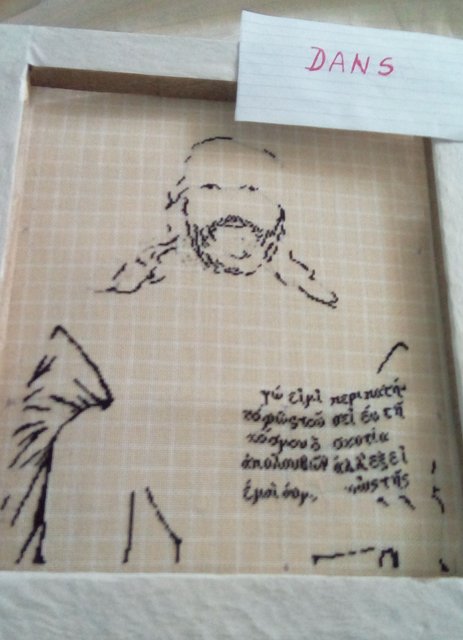 DANS
γώ εἰμι περιπατή
τὸ φῶς τοῦ σει ἐν τῇ
κόσμου ὁ σκοτία
ἀκολουθῶν ἀλλ ἕξει
ἐμοὶ τῆς